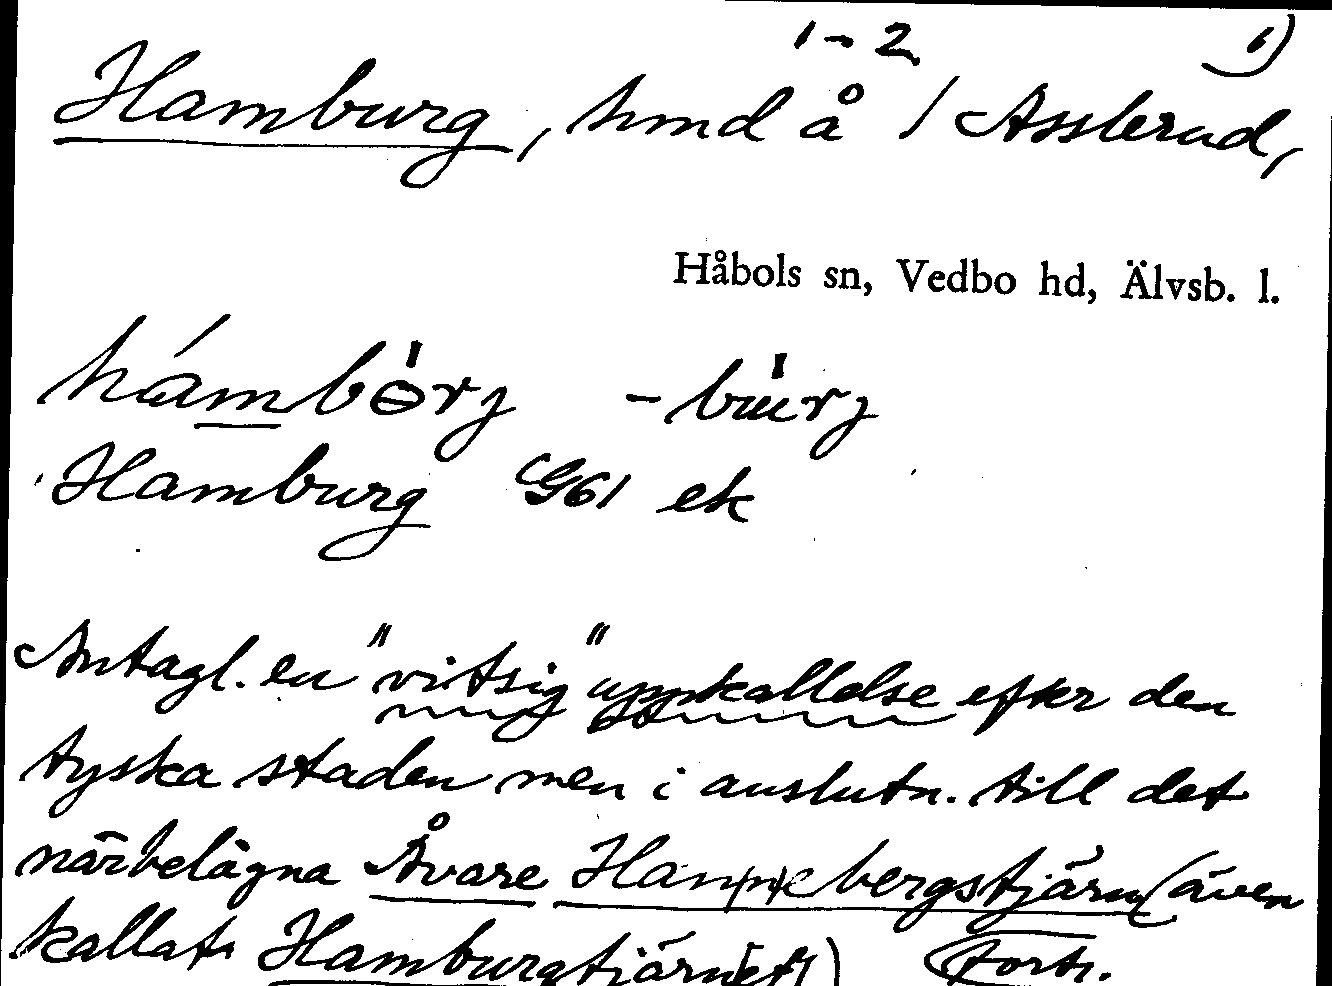 1-2 1)
Hamburg, hmd å 1 Asslerud,
Håbols sn, Vedbo hd, Älvsb. l.
hámbɵ̀rj -bùrj
Hamburg G61 ek
Antagl. en "vitsig" uppkallelse efter den
tyska staden men i anslutn. till det
närbelägna Åvare Hammebergstjärn (även
kallat Hamburgtjärn[et]) (forts.